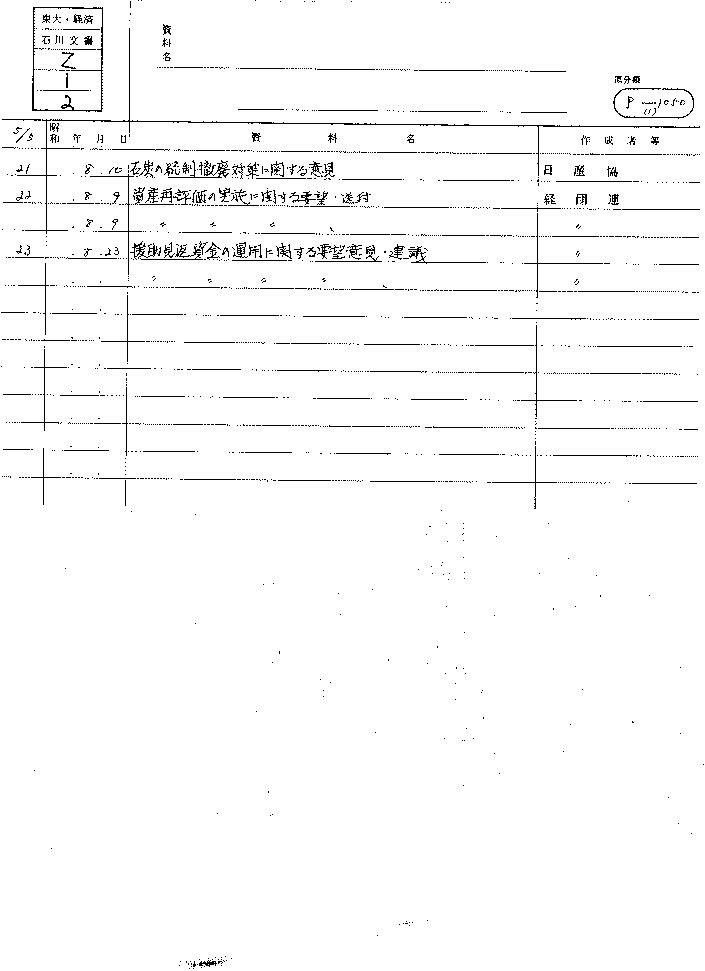 東大・経済
石川文書
Z
1
2
資料名
原分類
P (1) 1050
5/5 昭和 年 月 日 資料名 作成者等
21 . 8 . 10 石炭の統制撤廃対策に関する意見 日産協
22 . 8 . 9 資産再評価の実施に関する要望・送付 経団連
. 8 . 9 〃 〃 〃 、 〃
23 . 8 . 23 援助見返資金の運用に関する要望意見・建議 〃
. . 〃 〃 〃 〃 、 〃